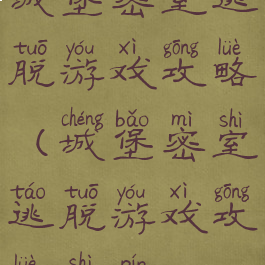 城堡密室逃
tuō yóu xì gōng lüè
脱游戏攻略
chéng bǎo mì shì
(城堡密室
táo tuō yóu xì gōng
逃脱游戏攻
lüè shì pín